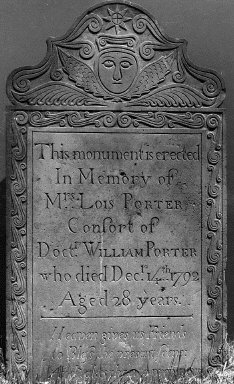 This monument is erected
In Memory of
Mrs. LOIS PORTER
Consort of
Doctr. WILLIAM PORTER
who died Decr. 14th 1792
Aged 28 years.
Heaven gives us Friends
to Bless the present scene